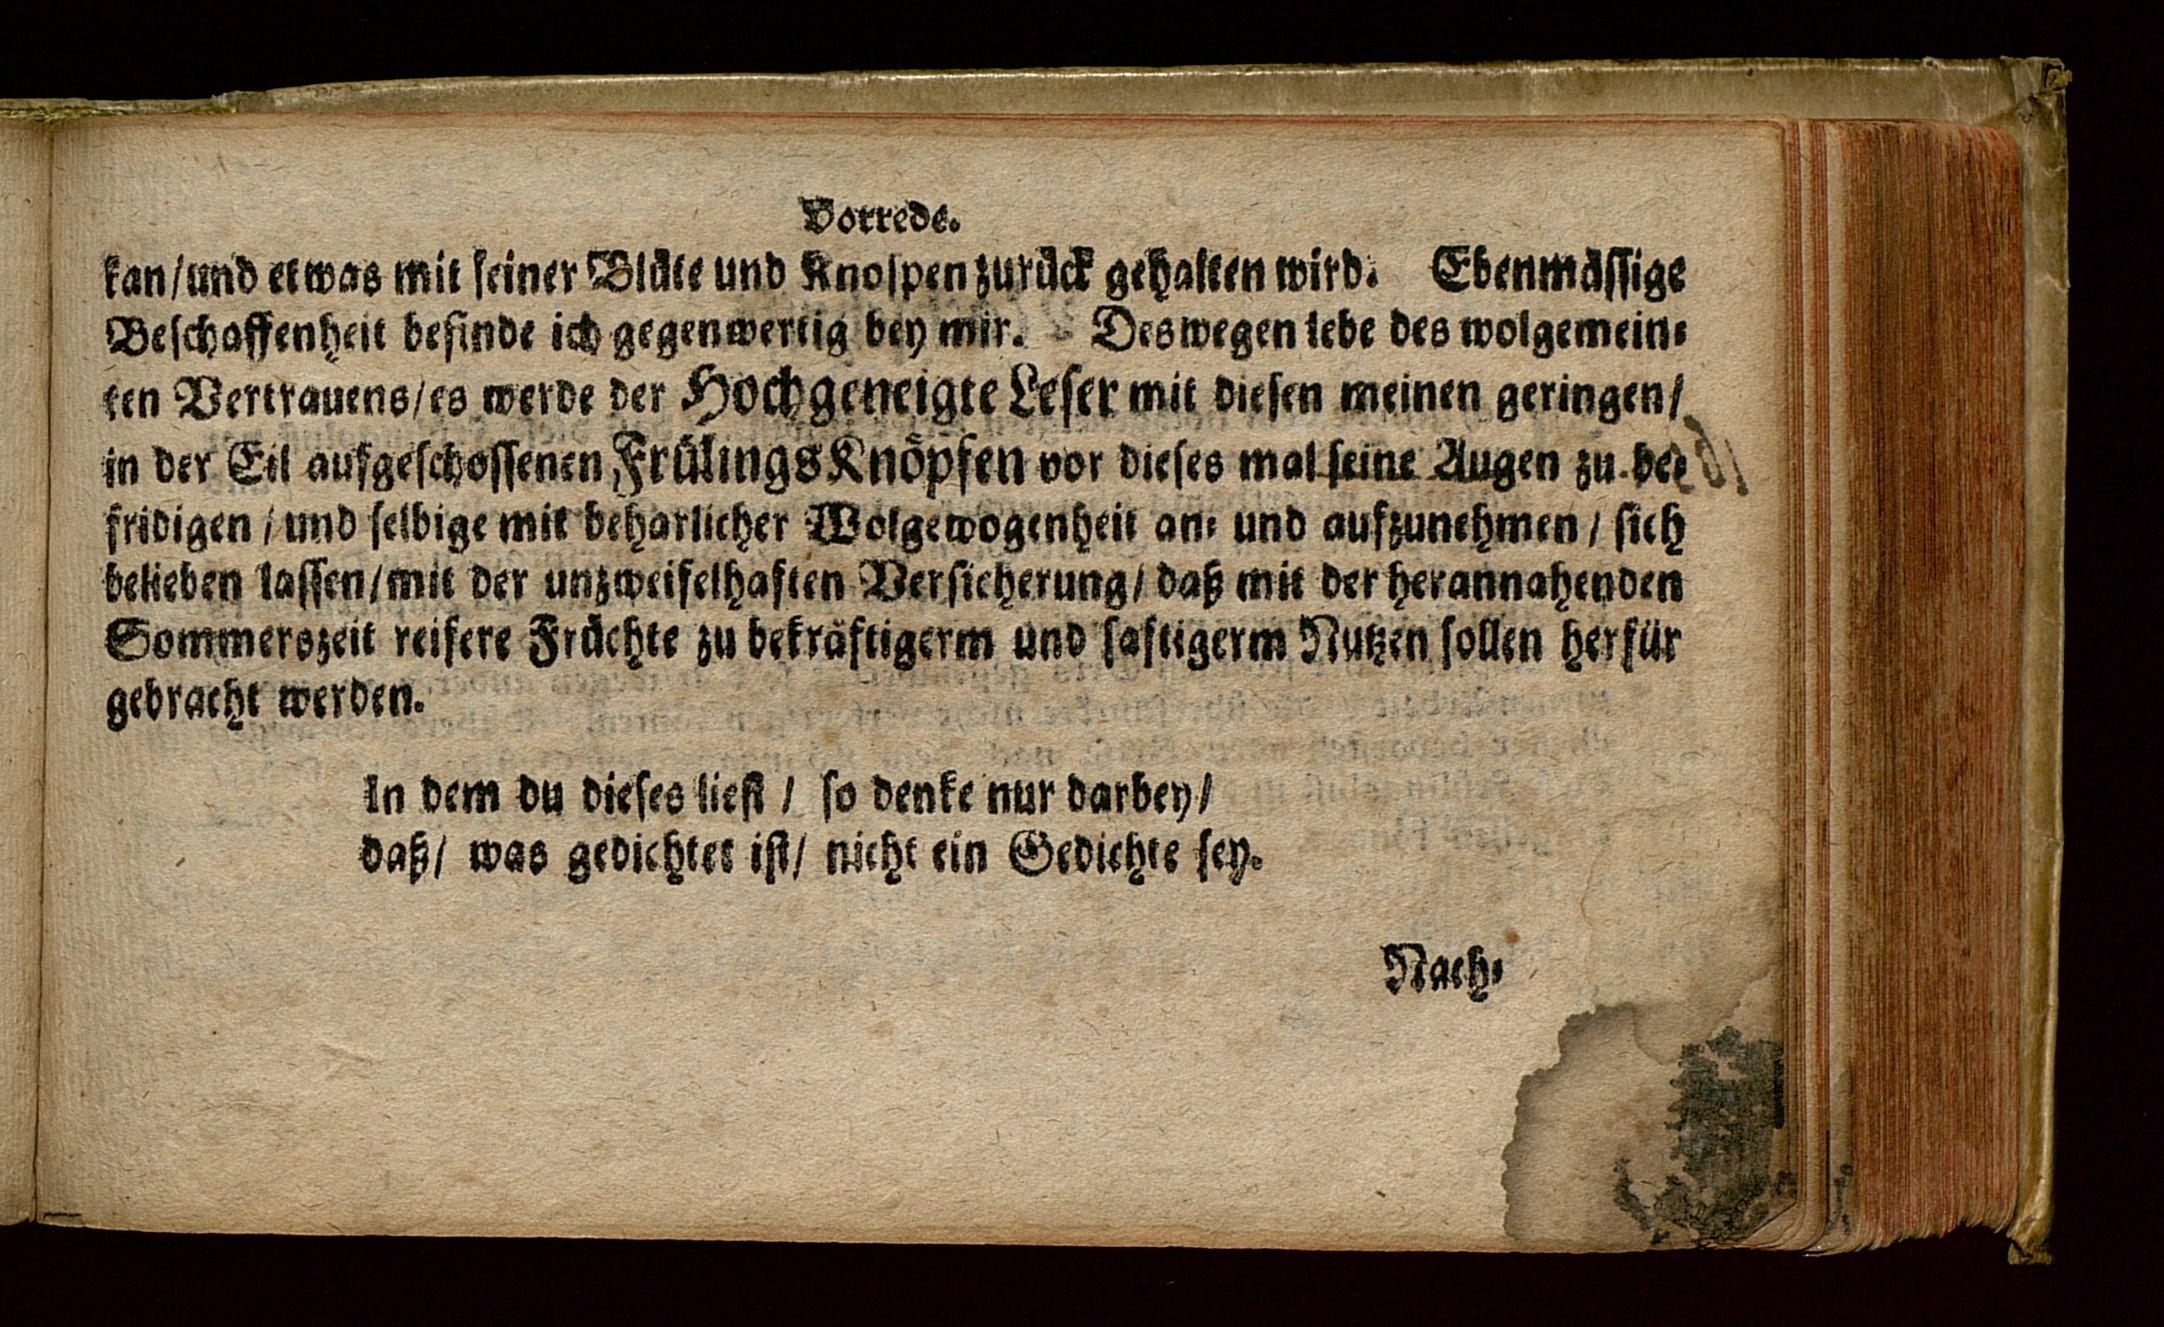 Vorrede.
kan/und etwas mit seiner Blüte und Knospen zurück gehalten wird. Ebenmässige
Beschaffenheit befinde ich gegenwertig bey mir. Deswegen lebe des wolgemein-
ten Vertrauens/es werde der Hochgeneigte Leser mit diesen meinen geringen/
in der Eil aufgeschossenen FrülingsKnöpfen vor dieses mal seine Augen zu be-
fridigen / und selbige mit beharlicher Wolgewogenheit an- und aufzunehmen / sich
belieben lassen/mit der unzweifelhaften Versicherung/ daß mit der herannahenden
Sommerszeit reifere Früchte zu bekräftigerm und saftigerm Nutzen sollen herfür
gebracht werden.
In dem du dieses liest / so denke nur darbey/
daß/ was gedichtet ist/ nicht ein Gedichte sey.
Nach-